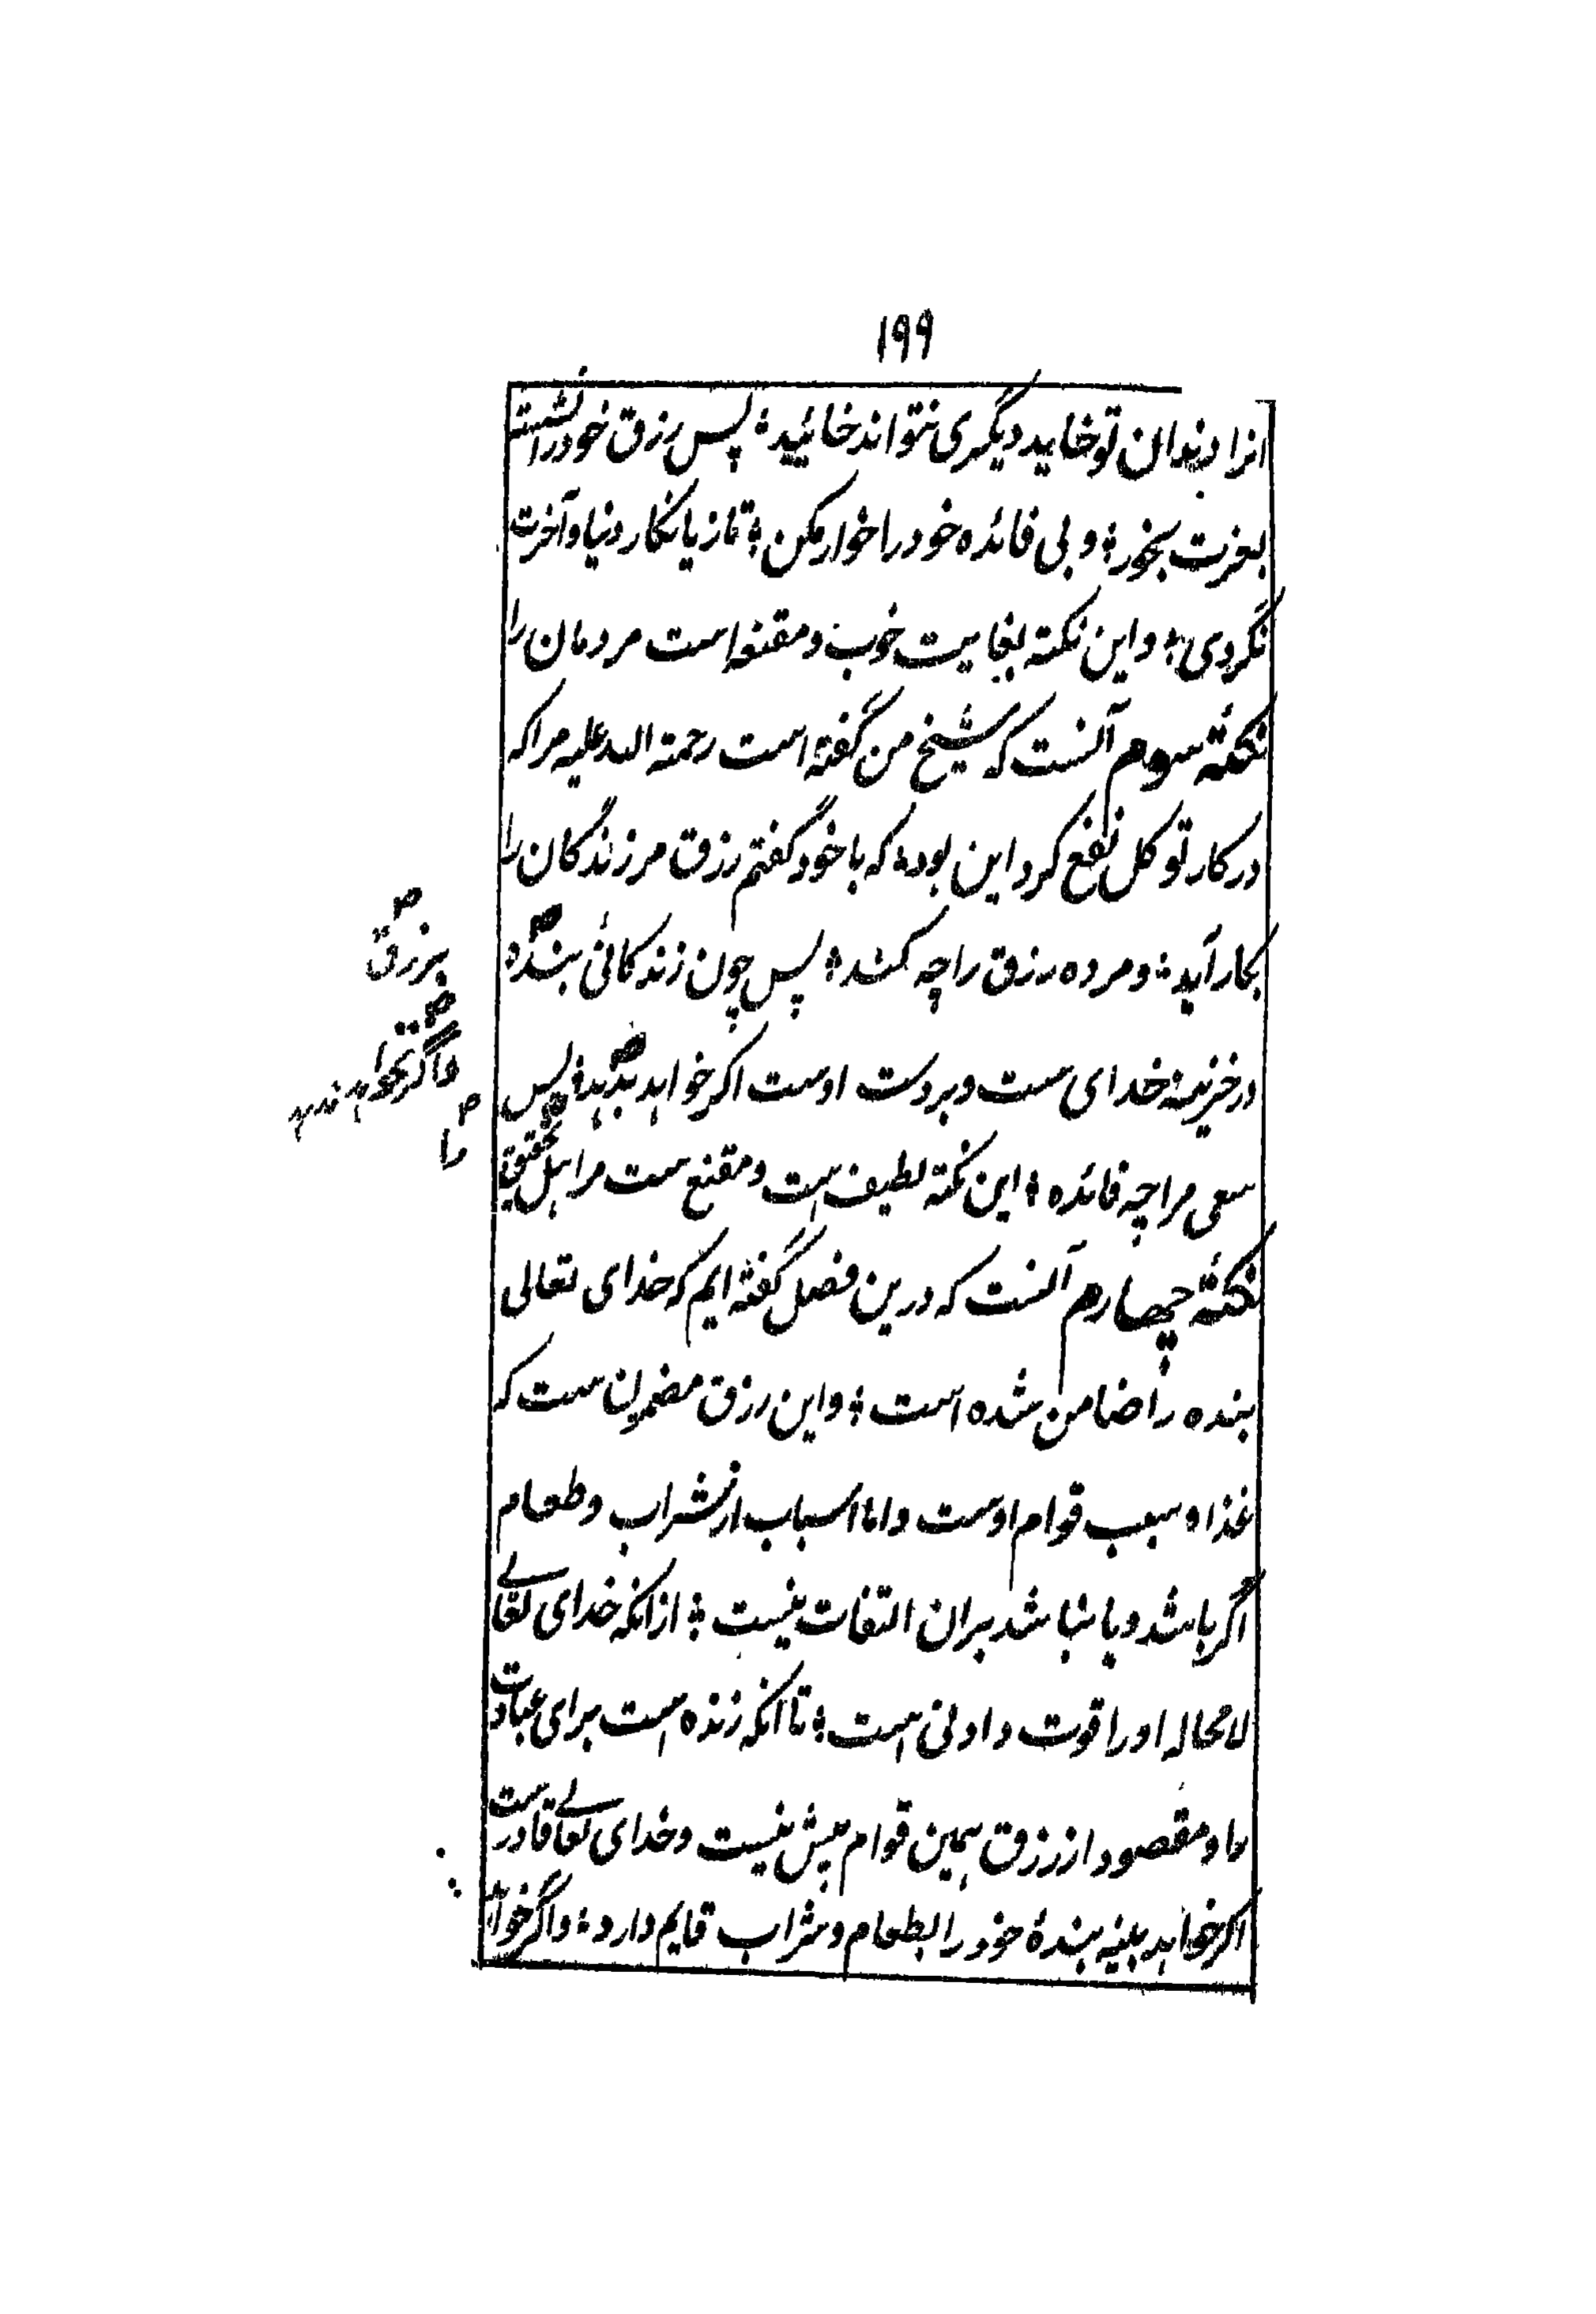 ۱۹۹
انرا دندان تو خایید دیگری نتواند خائید؛ پس رزق خود را نشسته
بعزت بخور؛ و بی فائده خود را خوار مکن؛ تا زیانکار دنیا و آخرت
نگردی؛ و این نکته بغایت خوب و مقنعه است مردمان را
نکتهٔ سوم آنست که شیخ من گفته است رحمة الله علیه مرا که
در کار توکل نفع کرد این بود؛ که با خود گفتم رزق مر زندگان را
بکار آید؛ و مرده رزق را چه کند؛ پس چون زندگانی بنده
در خزینهٔ خدای ست و بر دست اوست اگر خواهد بدهد؛ پس
سعی مرا چه فائده؛ این نکته لطیف است و مقنع ست مر اهل تحقیق
نکتهٔ چهارم آنست که درین فصل گفته ایم که خدای تعالی
بنده را ضامن شده است؛ و این رزق مضمون ست که
غذا و سبب قوام اوست و اما اسباب از شراب و طعام
اگر باشد و یا نباشد بران التفات نیست؛ از انکه خدای تعالی
لامحاله او را قوت دادنی است؛ تا انکه زنده است برای عبادت
ما و مقصود از رزق همین قوام بیش نیست و خدای تعالی قادر ست
اگر خواهد بنیه بندهٔ خود را بطعام و شراب قایم دارد؛ و اگر خواهد
برزق
و اگر نخواهد ندهد
را